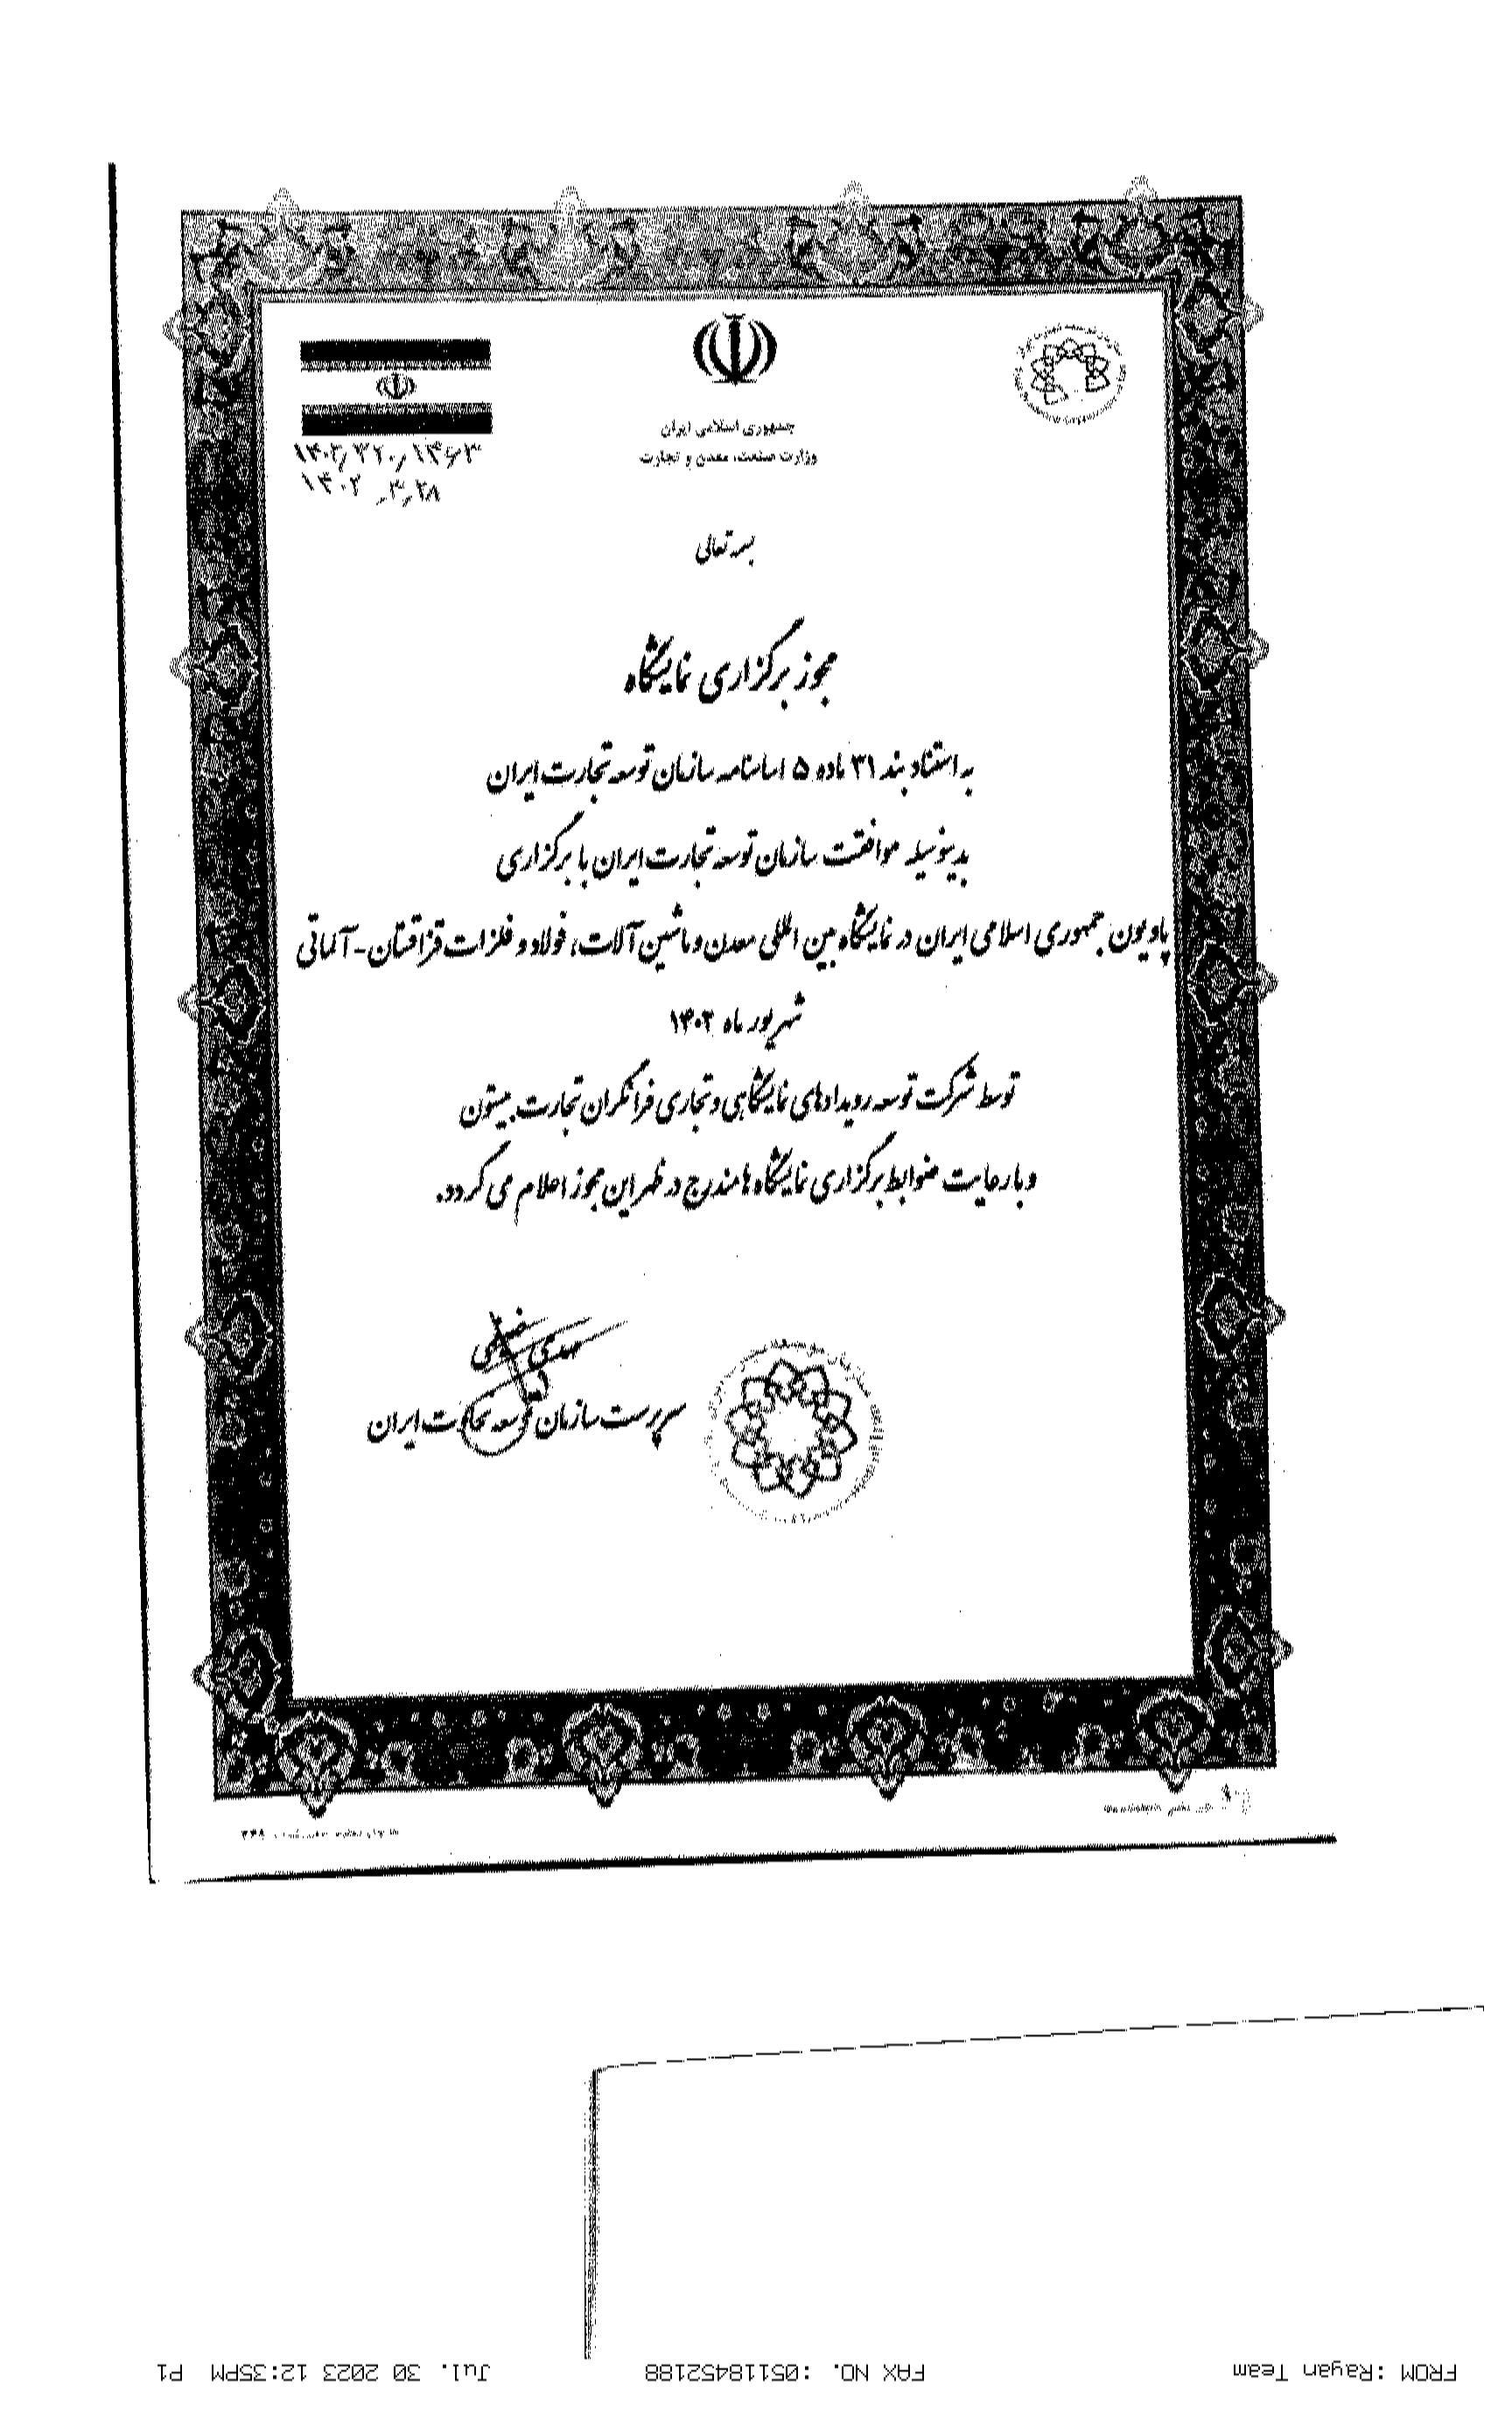 جمهوری اسلامی ایران
وزارت صنعت، معدن و تجارت
۱۴۰۲٫۳۲۰٫۱۴۶۳
۱۴۰۲٫۴٫۲۸
بسمه تعالی
مجوز برگزاری نمایشگاه
به استناد بند ۳۱ ماده ۵ اساسنامه سازمان توسعه تجارت ایران
بدینوسیله موافقت سازمان توسعه تجارت ایران با برگزاری
پاویون جمهوری اسلامی ایران در نمایشگاه بین المللی معدن و ماشین آلات، فولاد و فلزات قزاقستان - آلماتی
شهریور ماه ۱۴۰۲
توسط شرکت توسعه رویدادهای نمایشگاهی و تجاری فرانگران تجارت بیستون
و با رعایت ضوابط برگزاری نمایشگاه ها مندرج در ظهر این مجوز اعلام می گردد.
مهدی ضیغمی
سرپرست سازمان توسعه تجارت ایران
FROM :Rayan Team FAX NO. :05118452188 Jul. 30 2023 12:35PM P1